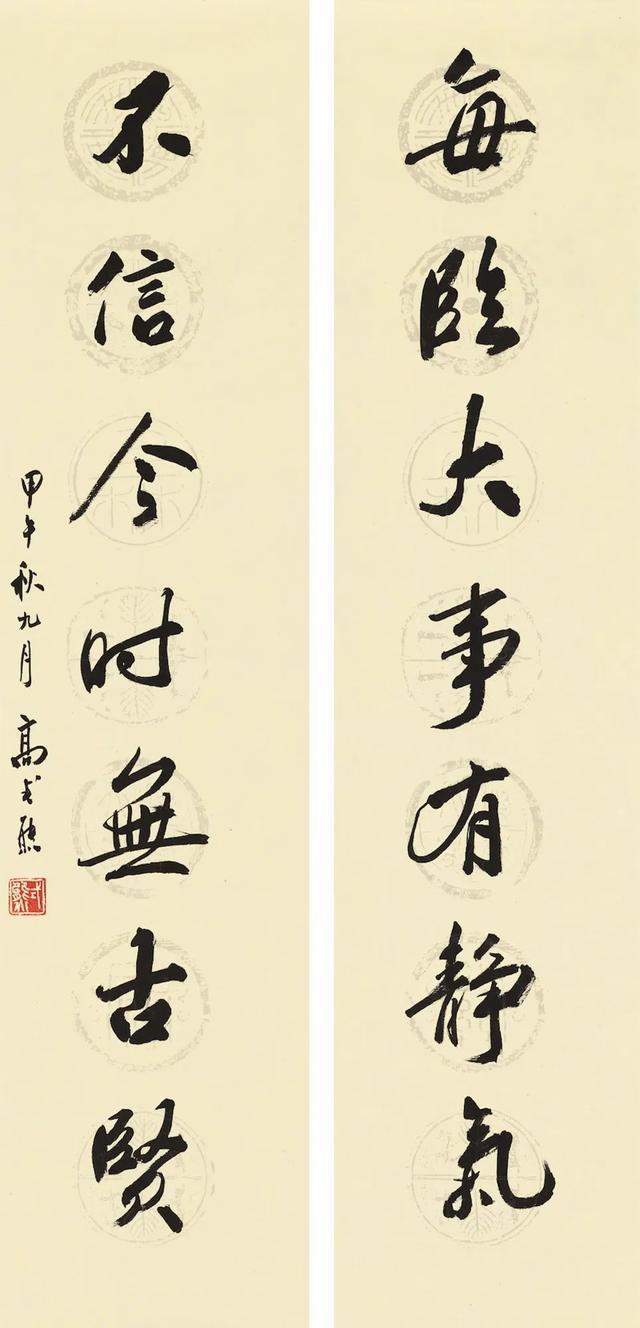 每臨大事有靜氣
不信今时無古賢
甲午秋九月 高式熊